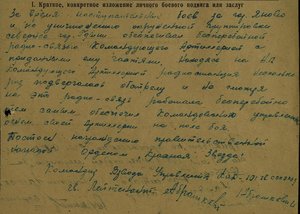 I. Краткое, конкретное изложение личного боевого подвига или заслуг
За время наступательных боев за гор. Яново
и по уничтожению окруженной группировки
обеспечил бесперебойной
радио-связью Командующего Артиллерией с
приданными ему частями. Находясь на НП
Командующего Артиллерией радиостанция несколько
раз подвергалась обстрелу и не смотря
на это радио-связь работала бесперебойно
тем самым, обеспечив Командованию управление
огнем своей артиллерии на поле боя.
Достоин награждения правительственной
наградой Орденом Красная Звезда.
Командир Взвода Управления
Лейтенант